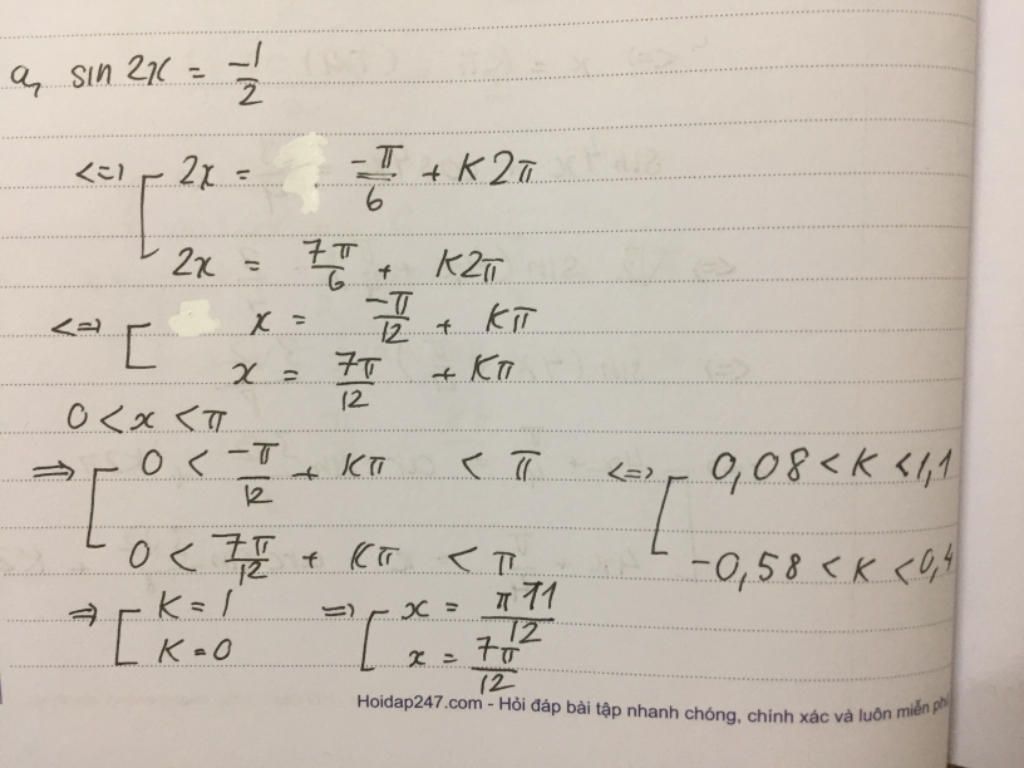 a, sin 2x = -1/2
<=> [ 2x = -π/6 + K2π
2x = 7π/6 + K2π
<=> [ x = -π/12 + Kπ
x = 7π/12 + Kπ
0 < x < π
=> [ 0 < -π/12 + Kπ < π <=> [ 0,08 < K < 1,1
0 < 7π/12 + Kπ < π -0,58 < K < 0,4
=> [ K = 1 => [ x = π11/12
K = 0 x = 7π/12
Hoidap247.com - Hỏi đáp bài tập nhanh chóng, chính xác và luôn miễn phí